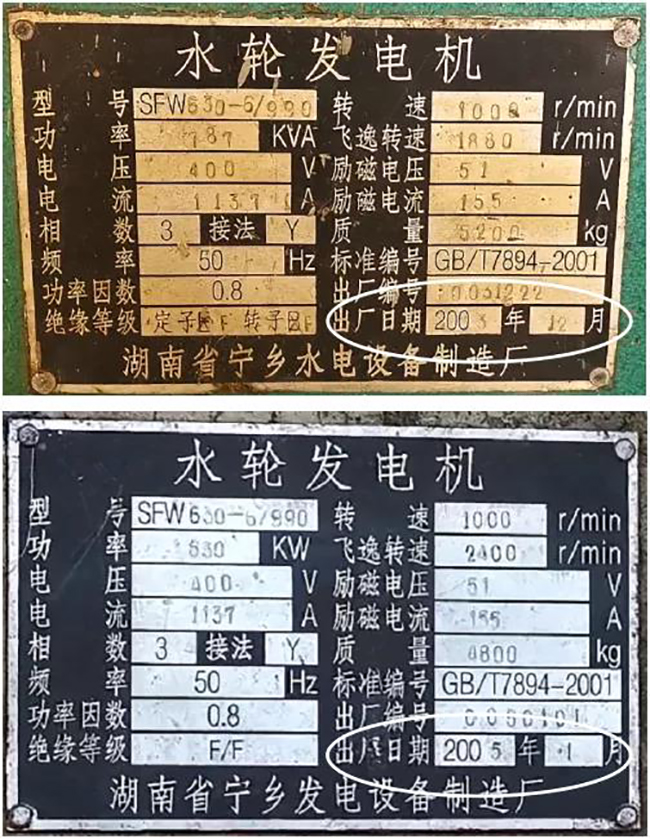 水轮发电机
型号 SFW630-6/990 转速 1000 r/min
功率 787 KVA 飞逸转速 1880 r/min
电压 400 V 励磁电压 51 V
电流 1137 A 励磁电流 155 A
相数 3 接法 Y 质量 5200 kg
频率 50 Hz 标准编号 GB/T7894-2001
功率因数 0.8 出厂编号 0031222
绝缘等级 定子F 转子F 出厂日期 2003年12月
湖南省宁乡水电设备制造厂
水轮发电机
型号 SFW630-6/990 转速 1000 r/min
功率 630 KW 飞逸转速 2400 r/min
电压 400 V 励磁电压 51 V
电流 1137 A 励磁电流 155 A
相数 3 接法 Y 质量 4800 kg
频率 50 Hz 标准编号 GB/T7894-2001
功率因数 0.8 出厂编号 0050101
绝缘等级 F/F 出厂日期 2005年1月
湖南省宁乡发电设备制造厂